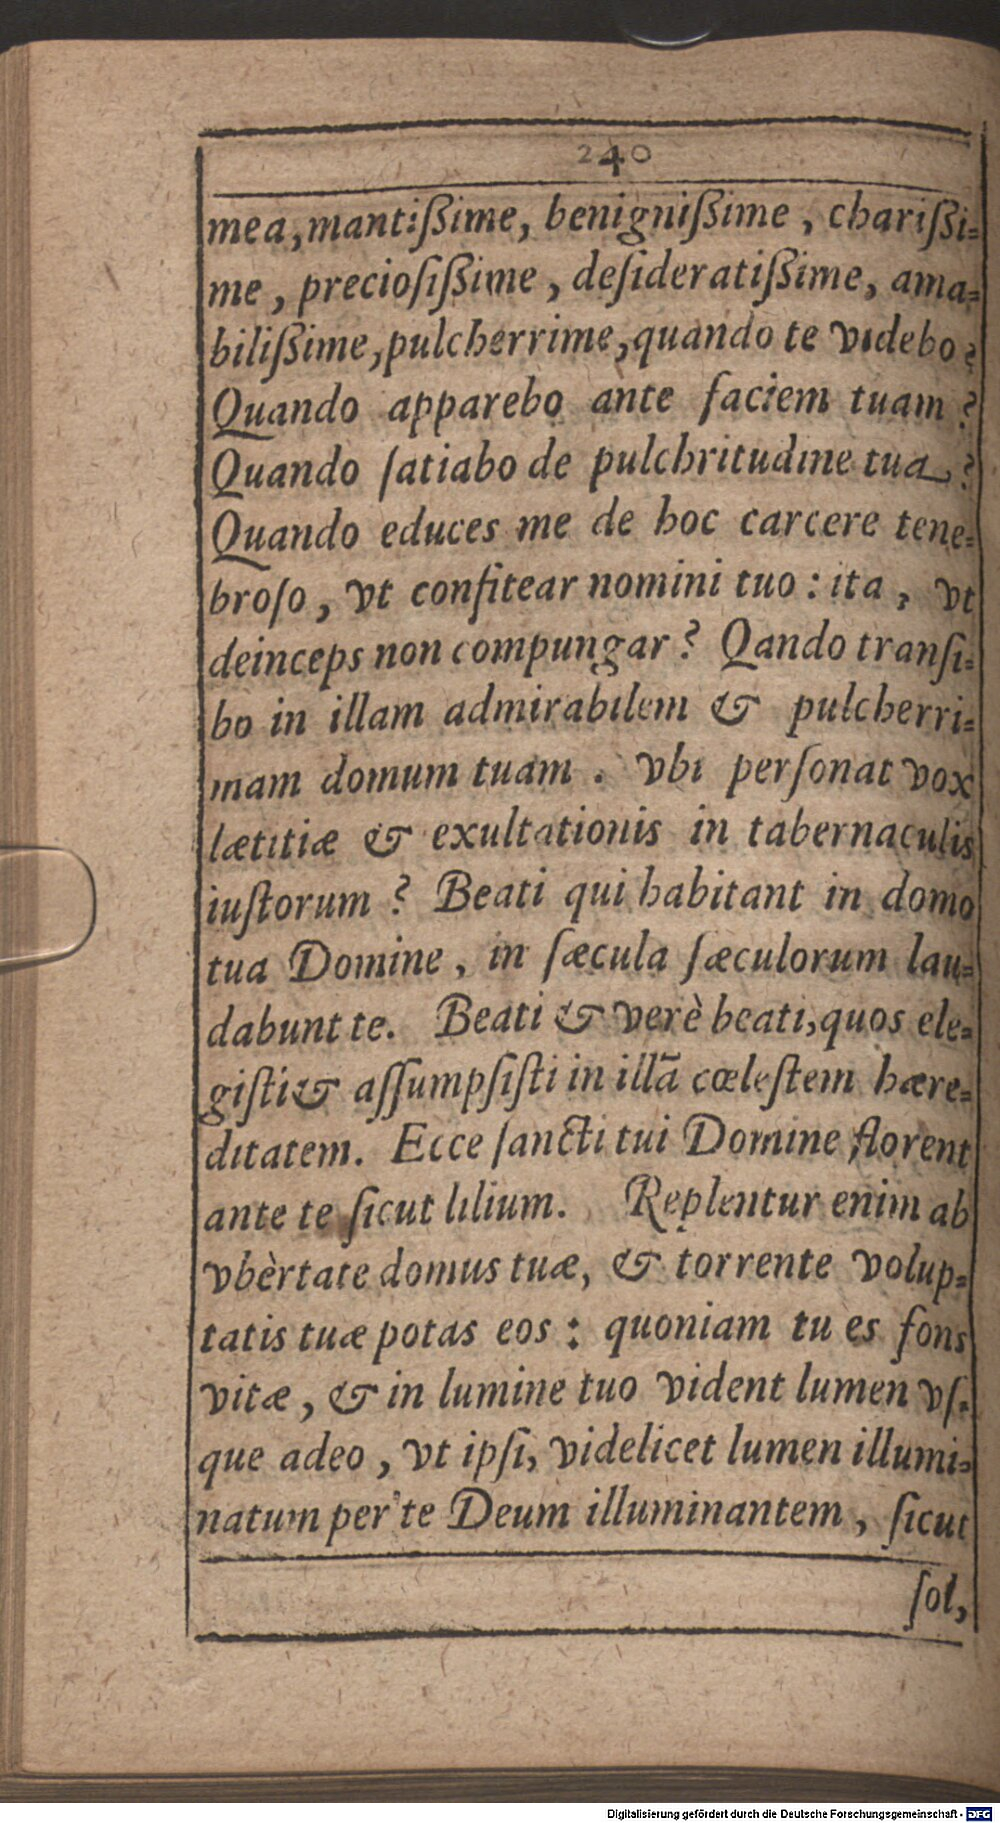 240
mea, mantißime, benignißime, charißi-
me, preciosißime, desideratißime, ama-
bilißime, pulcherrime, quando te videbo?
Quando apparebo ante faciem tuam?
Quando ſatiabo de pulchritudine tua?
Quando educes me de hoc carcere tene-
broſo, vt confitear nomini tuo: ita, vt
deinceps non compungar? Qando tranſi-
bo in illam admirabilem & pulcherri-
mam domum tuam. vbi perſonat vox
lætitiæ & exultationis in tabernaculis
iuſtorum? Beati qui habitant in domo
tua Domine, in ſæcula ſæculorum lau-
dabunt te. Beati & verè beati, quos ele-
giſti & aſſumpſiſti in illā cœleſtem hære-
ditatem. Ecce ſancti tui Domine florent
ante te ſicut lilium. Replentur enim ab
vbèrtate domus tuæ, & torrente volup-
tatis tuæ potas eos: quoniam tu es fons
vitæ, & in lumine tuo vident lumen vſ-
que adeo, vt ipſi, videlicet lumen illumi-
natum per te Deum illuminantem, ſicut
ſol,
Digitalisierung gefördert durch die Deutsche Forschungsgemeinschaft - DFG